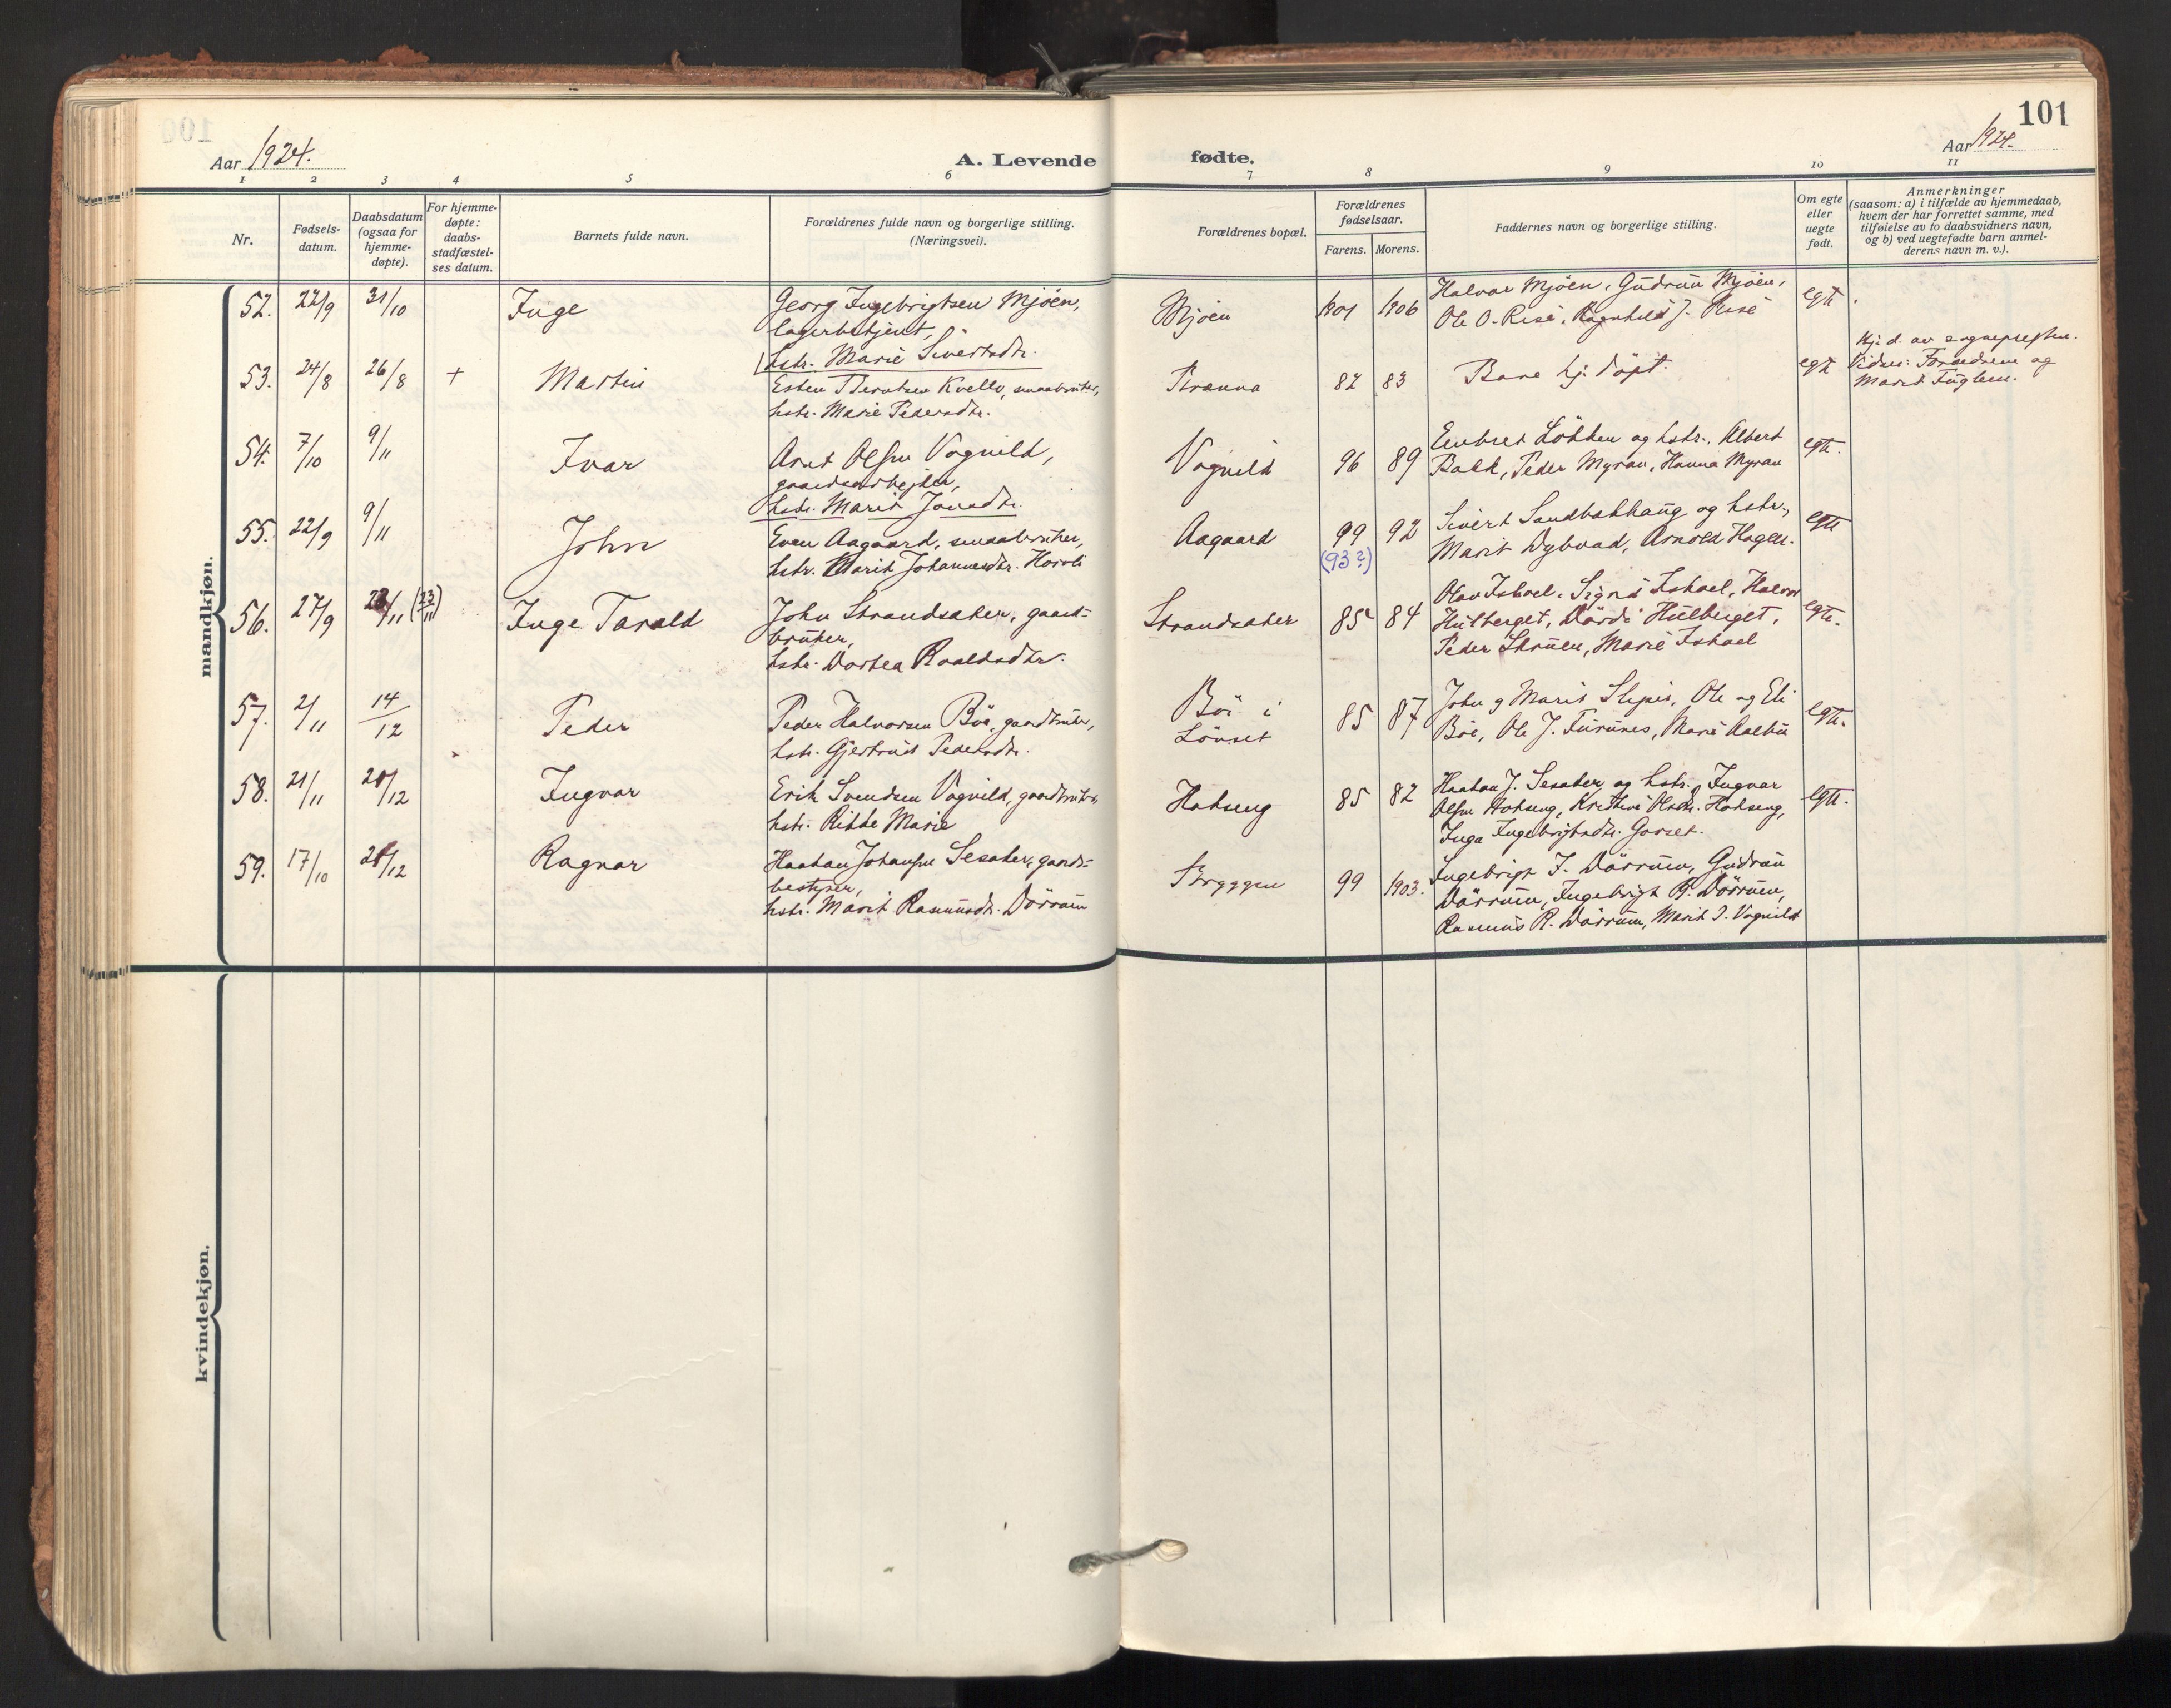 101
Aar 1924.
A. Levende
fødte.
Aar 1924.
1 2 3 4 5 6 7 8 9 10 11
Nr.
Fødsels-
datum.
Daabsdatum
(ogsaa for
hjemme-
døpte).
For hjemme-
døpte:
daabs-
stadfæstel-
ses datum.
Barnets fulde navn.
Forældrenes fulde navn og borgerlige stilling.
(Næringsvei).
Forældrenes bopæl.
Forældrenes
fødselsaar.
Farens. Morens.
Faddernes navn og borgerlige stilling.
Om egte
eller
uegte
født.
Anmerkninger
(saasom: a) i tilfælde av hjemmedaab,
hvem der har forrettet samme, med
tilføielse av to daabsvidners navn,
og b) ved uegtefødte barn anmel-
derens navn m. v.).
mandkjøn.
52. 22/9 31/10 Inge
Georg Ingebrigtsen Mjöen,
lagerbetjent,
hstr. Marie Sivertsdtr.
Mjöen 1901 1906
Halvar Mjöen, Gudrun Mjöen,
Ole O. Rise, Ragnhild J. Rise
egte.
53. 24/8 26/8 + Martin
Esten Kvello, smaabruker,
hstr. Marie Pedersdtr.
82 83
Bare hj. döpt.
egte
Hj. d. av sognepresten.
Vidner: Forældrene og
Marit Fuglem.
54. 7/10 9/11 Ivar
Arnt Olsen Vognild,
gaardsarbejder,
hstr. Marit Jonsdtr.
Vognild 96 89
Embret Lökken og hstr., Albert
Balk, Peder Myran, Hanna Myran
egte.
55. 22/9 9/11 John
Even Aagaard, smaabruker,
hstr. Marit Johannesdtr.
Aagaard 99 92
(93?)
Sivert Sandbækhaug og hstr.,
Marit Dybvad, Arnold Hagen.
egte
56. 27/9 23/11 (23/11) Inge Tarald
John Strandsaker, gaard-
bruker,
hstr. Dortea Roaldsdtr.
Strandsaker 85 84
Olav Ishoel, Signe Ishoel, Halvor
Hulberget, Dordi Hulberget,
Peder Skruen, Marie Ishoel
egte.
57. 2/11 14/12 Peder
Peder Halvorsen Böe, gaardbruker,
hstr. Gjertrud Pedersdtr.
Böe i
Lönset
85 87
John og Marit Slipir, Ole og Eli
Böe, Ole J. Furunes, Marie Aalbu
egte.
58. 21/11 21/12 Ingvar
Erik Svendsen Vognild, gaardbruker,
hstr. Marie
Hokseng 85 82
Haakon J. Sesaker og hstr., Ingvar
Olsen Hokseng, Kristine Olsdtr. Hokseng,
Inga Ingebrigtsdtr. Gorset.
egte.
59. 17/10 21/12 Ragnar
Haakon Johansen Sesaker, gaards-
bestyrer,
hstr. Marit Rasmusdtr. Dörrum
Bryggen 99 1903.
Ingebrigt I. Dörrum, Gudrun
Dörrum, Ingebrigt R. Dörrum,
Rasmus R. Dörrum, Marit I. Vognild
kvindekjøn.